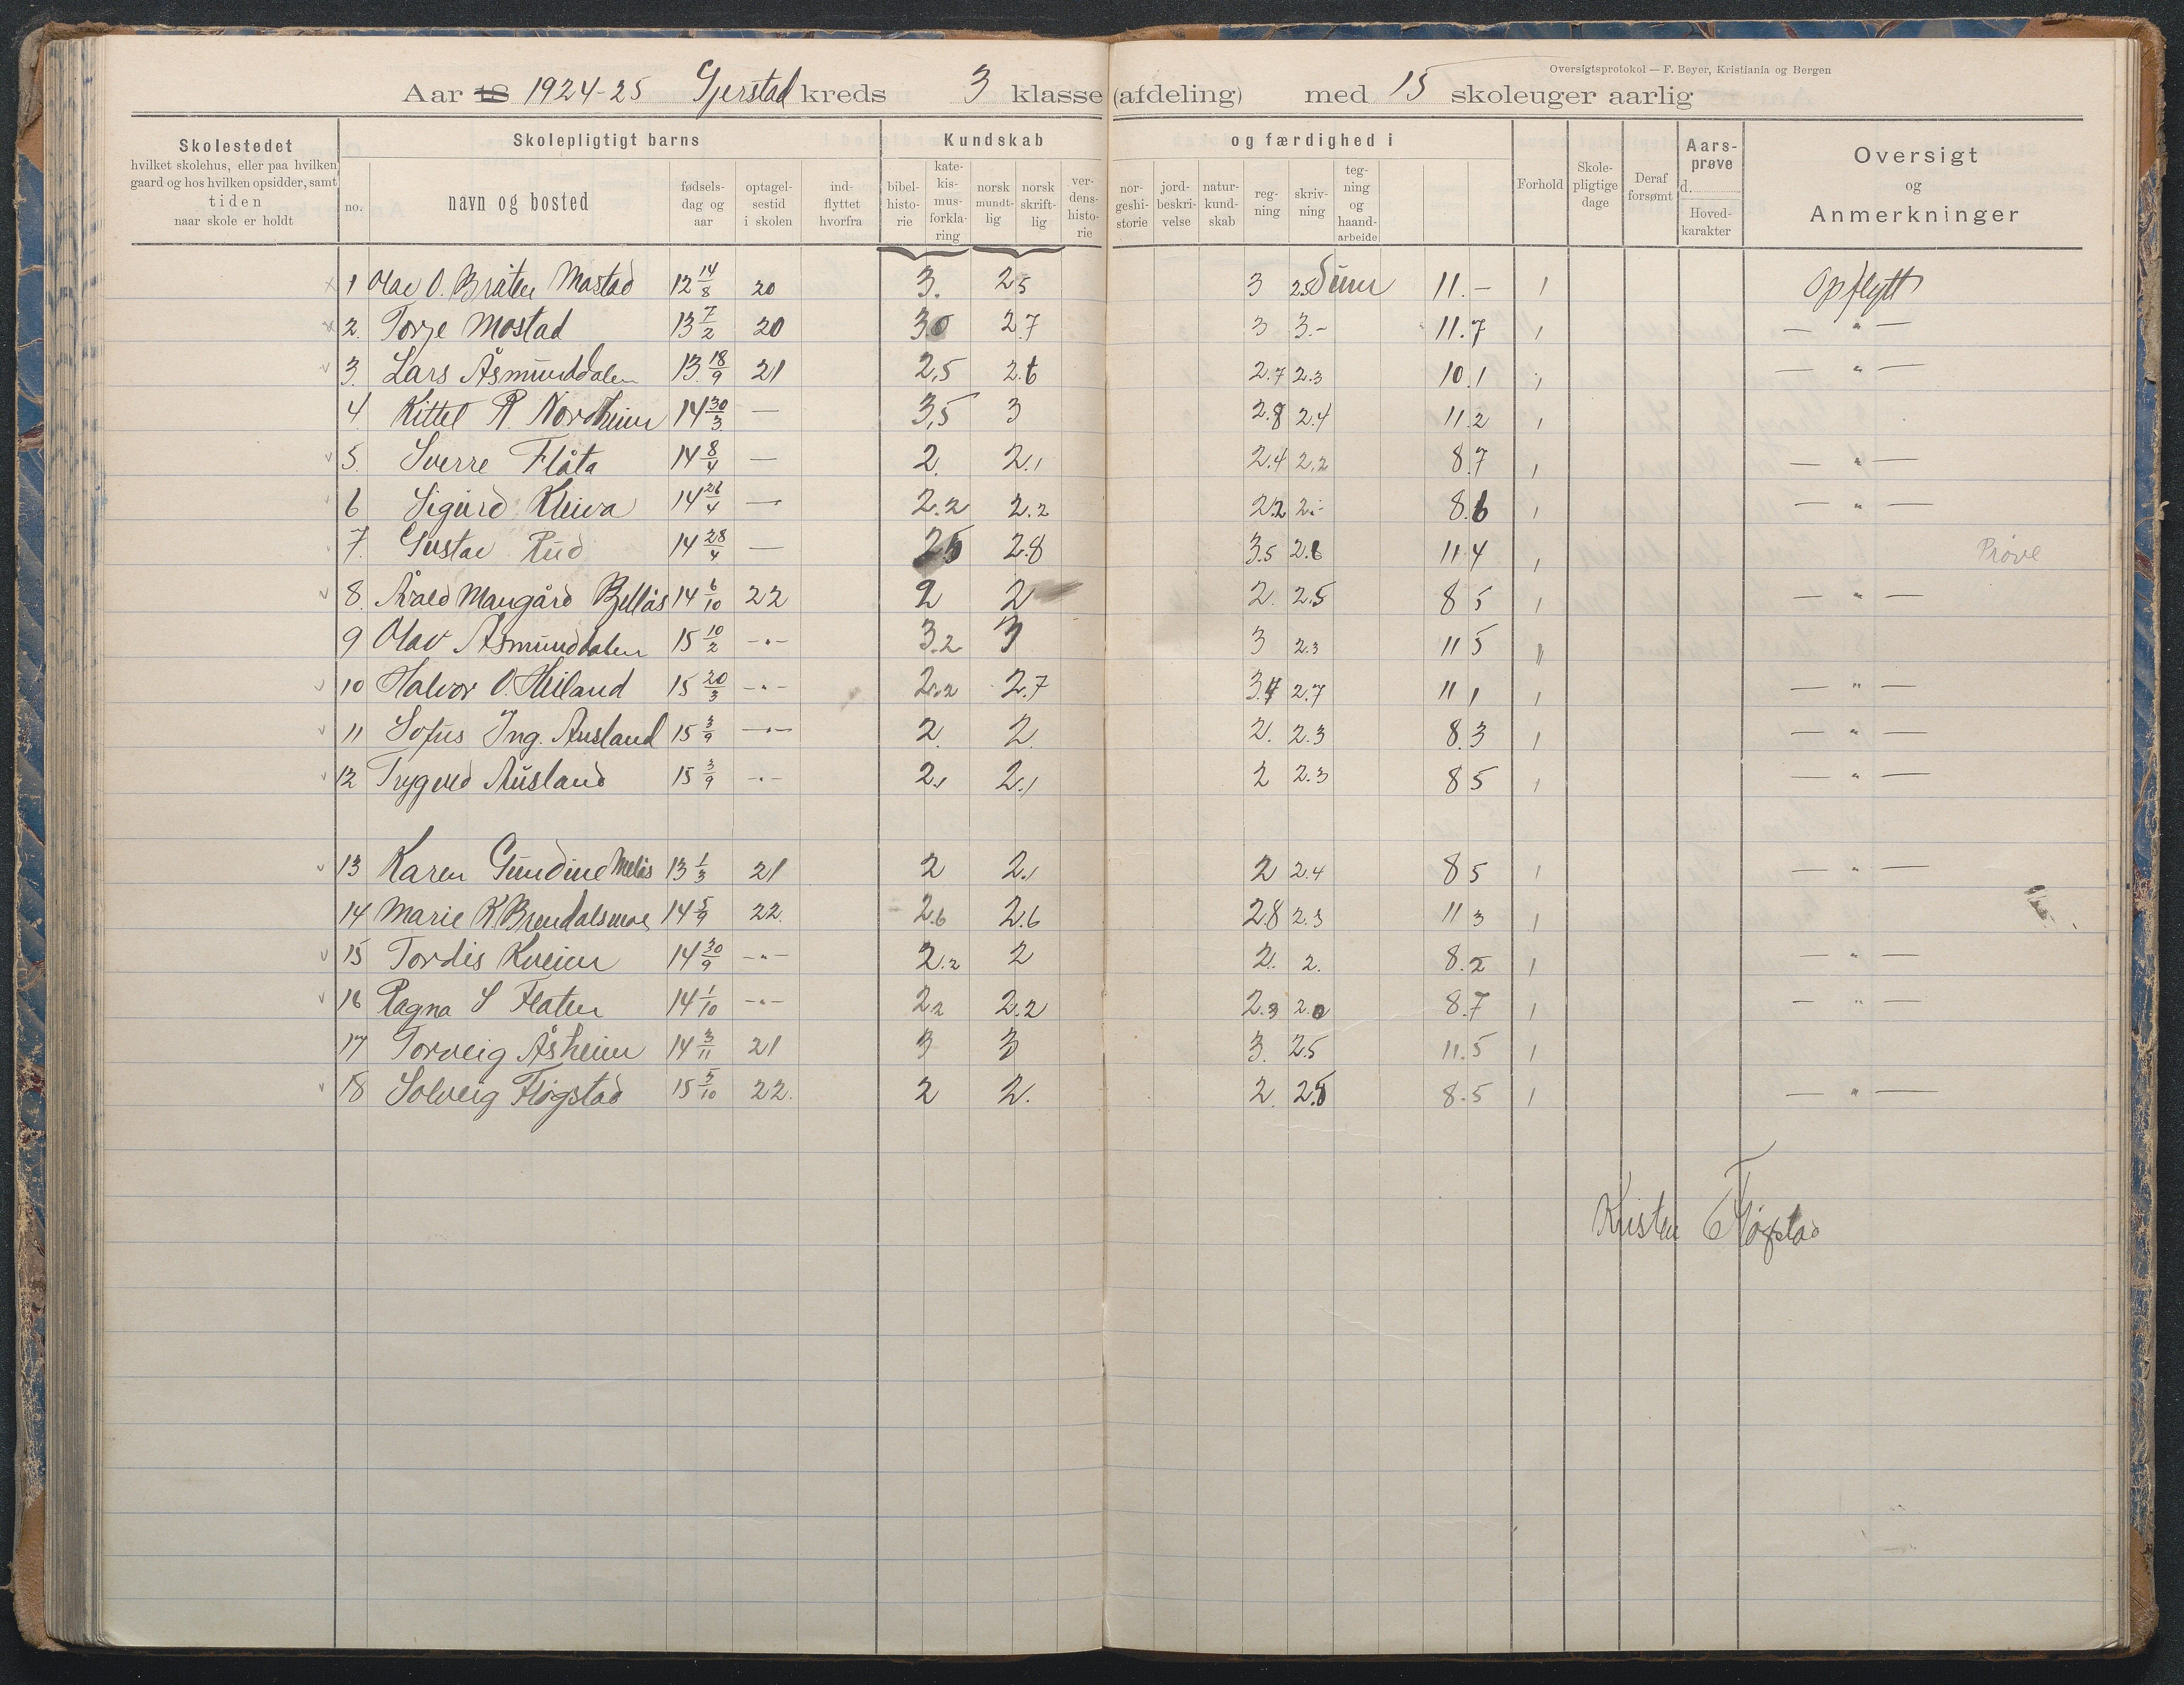 Oversigtsprotokol — F. Beyer, Kristiania og Bergen
Aar 18 1924-25 Gjerstad kreds 3 klasse (afdeling) med 15 skoleuger aarlig
Skolestedet hvilket skolehus, eller paa hvilken gaard og hos hvilken opsidder, samt tiden naar skole er holdt
Skolepligtigt barns
no. navn og bosted fødsels-dag og aar optagel-sestid i skolen ind-flyttet hvorfra
Kundskab og færdighed i
bibel-histo-rie kate-kis-mus-forkla-ring norsk mundt-lig norsk skrift-lig ver-dens-histo-rie nor-geshi-storie jord-beskri-velse natur-kund-skab reg-ning skriv-ning teg-ning og haand-arbeide
Forhold Skole-pligtige dage Deraf forsømt Aars-prøve d. Hoved-karakter
Oversigt og Anmerkninger
1 Olav O. Bråten Mostad 12 14/8 20 3. 2 5 3 2.5 Sum 11.- 1 Opflytt
2. Torje Mostad 13 7/2 20 30 2.7 3 3.- 11.7 1 — " —
3. Lars Åsmunddalen 13 18/9 21 2,5 2.6 2.7 2.3 10.1 1 — " —
4 Kittel R. Nordheim 14 30/3 — 3,5 3 2.8 2.4 11.2 1
5. Sverre Flåta 14 8/4 — 2. 2.1 2.4 2.2 8.7 1 — " —
6 Sigurd Kleiva 14 26/4 — 2.2 2.2 2.2 2.- 8.6 1 — " —
7. Gustav Rud 14 28/4 — 25 2.8 3.5 2.6 11 4 1 Prøve
8. Årald Maugård Bellås 14 6/10 22 2 2 2. 2.5 8 5 1 — " —
9 Olav Åsmunddalen 15 10/2 -"- 3.2 3 3 2.3 11 5 "
10 Halvor O. Heiland 15 20/3 -"- 2.2 2.7 3.4 2.7 11 1 1 — " —
11 Sofus Ing. Ausland 15 3/9 -"- 2. 2. 2. 2.3 8.3 1 — " —
12 Trygved Ausland 15 3/9 -"- 2.1 2.1 2 2.3 8 5 1 — " —
13 Karen Gundine Melås 13 1/3 21 2 2.1 2 2.4 8 5 1 — " —
14 Marie K. Brendalsmoe 14 5/9 22. 2.6 2.6 2.8 2.3 11 3 1
15 Tordis Kveim 14 30/9 -"- 2.2 2 2. 2. 8.2 1 — " —
16 Ragna S Flaten 14 1/10 -"- 2.2 2.2 2.3 2.0 8.7 1 — " —
17 Torveig Åsheim 14 3/11 21 3 3 3. 2.5 11.5 1
18 Solveig Fløgstad 15 5/10 22. 2 2. 2. 2.5 8.5 1 — " —
Kristen Fløgstad